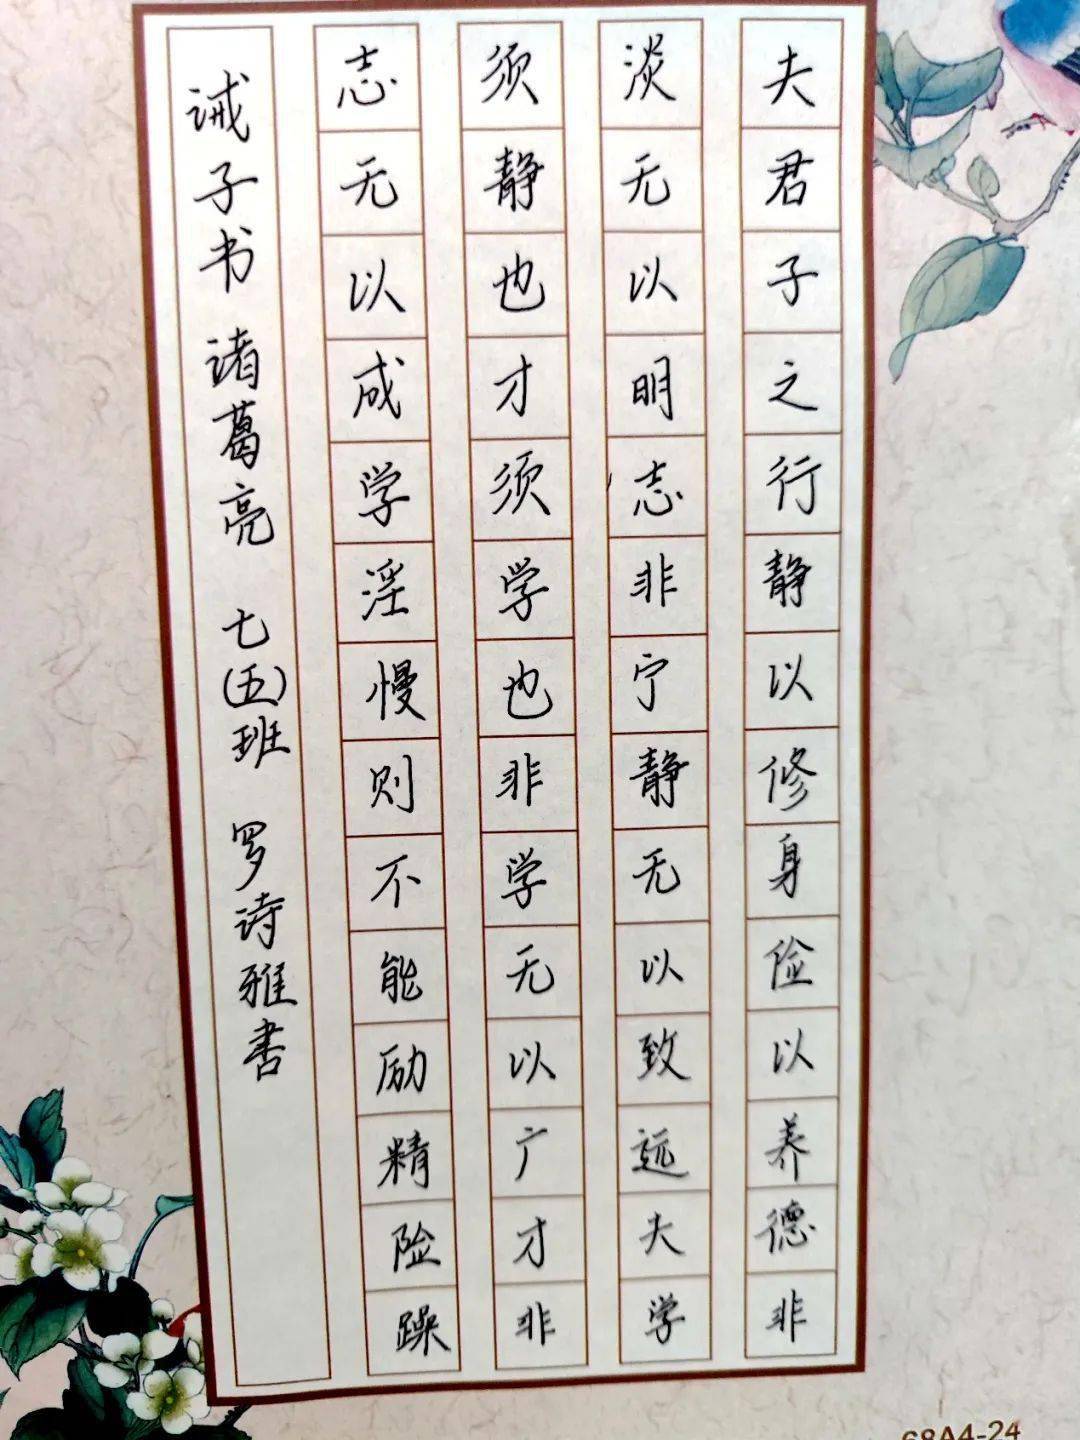 夫君子之行静以修身俭以养德非
淡无以明志非宁静无以致远夫学
须静也才须学也非学无以广才非
志无以成学淫慢则不能励精险躁
诫子书 诸葛亮 七(五)班 罗诗雅书
68A4-24